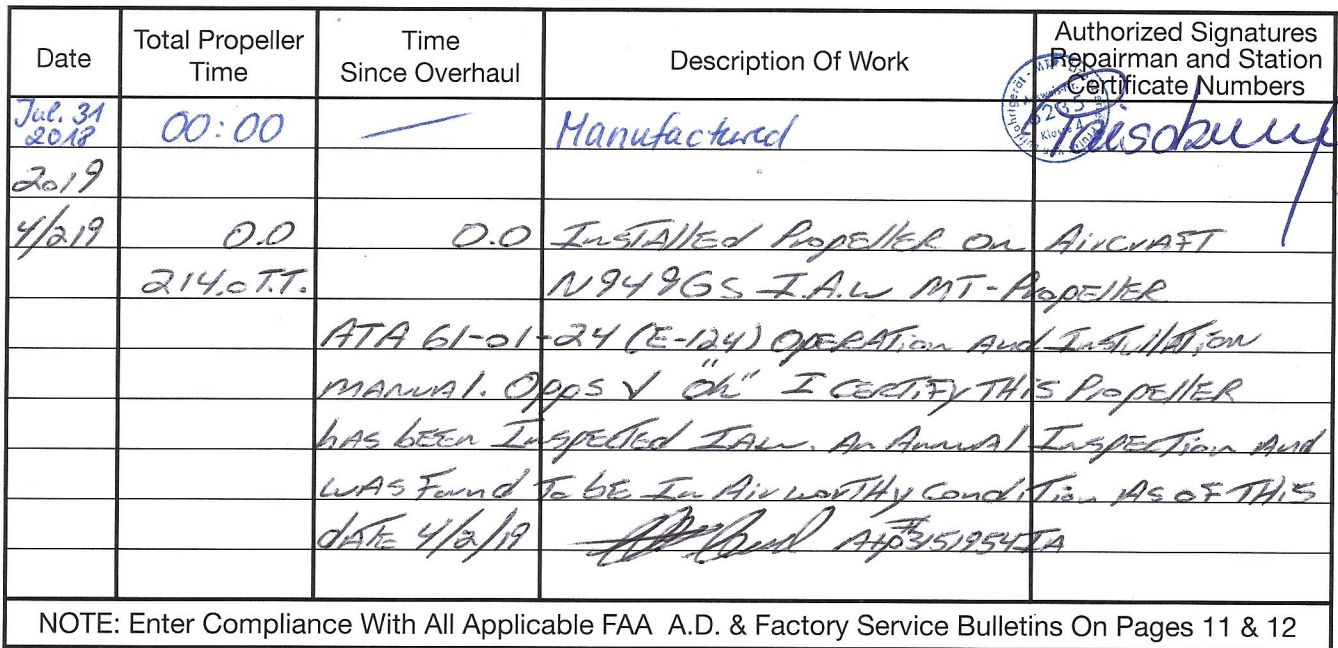 Date
Total Propeller Time
Time Since Overhaul
Description Of Work
Authorized Signatures Repairman and Station Certificate Numbers
Jul. 31 2018 00:00 — Manufactured
5235
Klasse 4
2019
4/2/19 0.0 0.0 InSTAlled PropEller On AircrAFT
214.0 T.T. N949GS I.A.W MT-PropEller
ATA 61-01-24 (E-124) OpERATion And InSTullATion
mANuAl. Opps √ "Ok" I CERTiFy THiS PropEllER
hAS bEEn InspECTEd IAW. An AnnuAl InspECTion And
wAS Found To bE In AirworTHy CondiTion AS oF THiS
dATE 4/2/19 A+P#3151954IA
NOTE: Enter Compliance With All Applicable FAA A.D. & Factory Service Bulletins On Pages 11 & 12